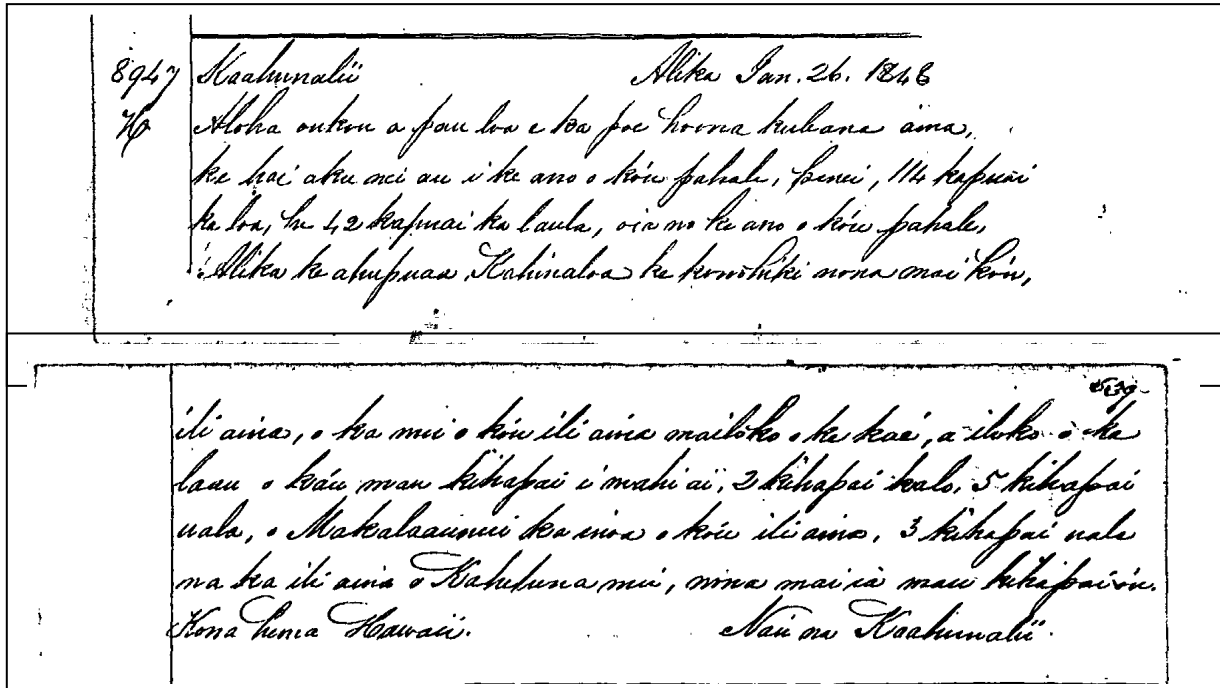 8947 Kaahunalii Alika Jan. 26. 1848
H Aloha oukou a pau loa e ka poe hoona kuleana aina,
ke hai aku nei au i ke ano o ko'u pahale, penei, 114 kapuai
ka loa, he 42 kapuai ka laula, oia no ke ano o ko'u pahale,
Alika ke ahupuaa Kahinaloa ke konohiki nona mai ko'u,
539
ili aina, o ka nui o ko'u ili aina mailoko o ke kae, a iloko o ka
laau o ka'u mau kihapai i mahi ai, 2 kihapai kalo, 5 kihapai
uala, o Makalaaunui ka inoa o ko'u ili aina, 3 kihapai uala
na ka ili aina o Kaheluna mii, nona mai ia mau kihapai o'u.
Kona hema Hawaii. Na'u na Kaahunalii.